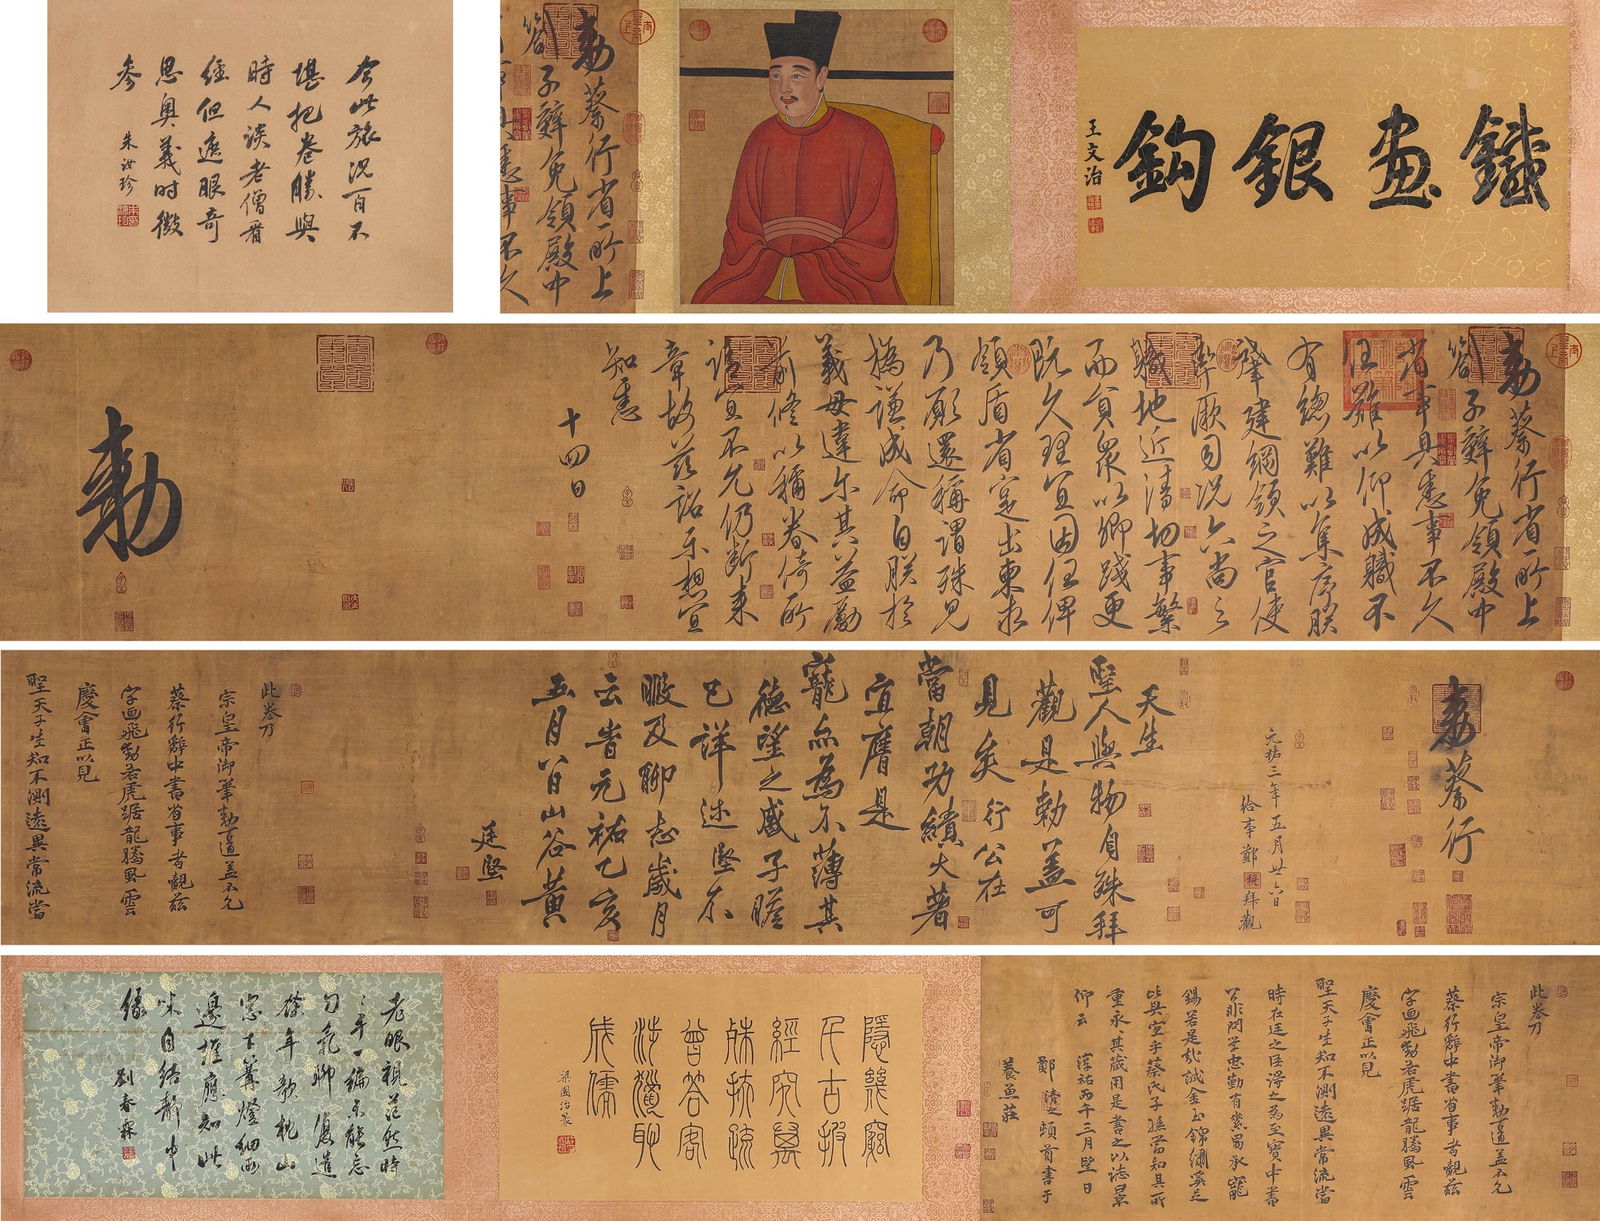 鐵畫銀鉤
王文治
敕蔡行省所上
劄子辭免領殿中
省事具悉事不久
敕蔡行省所上
劄子辭免領殿中
省事具悉事不久
任難以仰成職不
有總難以集序朕
肇建綱領之官使
率厥司況六尚之
職地近清切事繁
而員衆以卿踐更
既久理宜因任俾
領盾省寔出柬求
乃願還稱謂殊見
撝謙成命自朕於
義毋違爾其益勵
前修以稱眷倚所
請宜不允仍斷來
章故茲詔示想宜
知悉
十四日
敕
敕蔡行
元祐三年五月廿六日
給事鄭拜觀
天生
聖人與物自殊拜
觀是勅蓋可
見矣行公在
當朝功績大著
宜膺是
寵亦為不薄其
德望之盛子瞻
已詳述堅不
暇及聊志歲月
云旹元祐乙亥
五月八日山谷黃
庭堅
此卷乃
宗皇帝御筆勅一道蓋不允
蔡行辭中書省事者觀茲
字画飛動若虎踞龍騰風雲
慶會正以見
聖天子生知不測遠異常流當
此卷乃
宗皇帝御筆勅一道蓋不允
蔡行辭中書省事者觀茲
字画飛動若虎踞龍騰風雲
慶會正以見
聖天子生知不測遠異常流當
時在廷之臣得之為至寶中書
公非問學忠勤有素曷承寵
錫若是哉誠金玉錦繡奚足
比與乎蔡氏子孫當知其所
重永其藏用是書之以誌景
仰云 淳祐丙午三月望日
鄭清之頓首書于
養魚莊
成儒
梁國治篆
老眼視茫然時
時手一編不能忘
句氣聊復遣
餘年欹枕山
窗下篝燈細雨
邊誰應知此
味自結靜中
緣 劉春霖
今此旅況百不
堪把卷勝與
時人談老僧看
經但遮眼奇
思奧義時微
參 朱汝珍